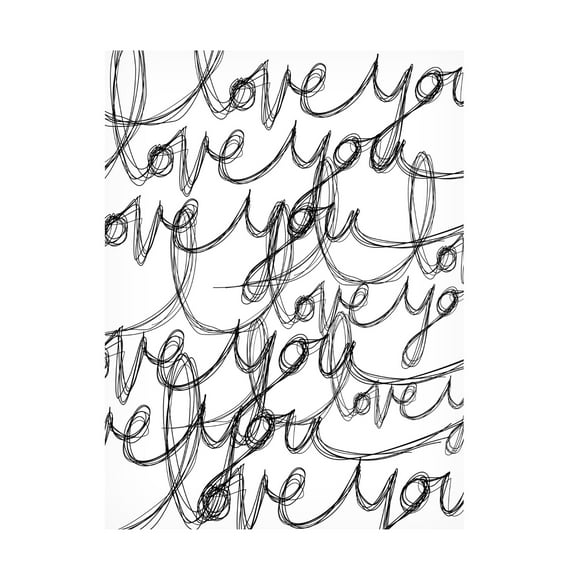 I love you
love you
ove you I lo
I love yo
ove you
I love y
e you
I love you